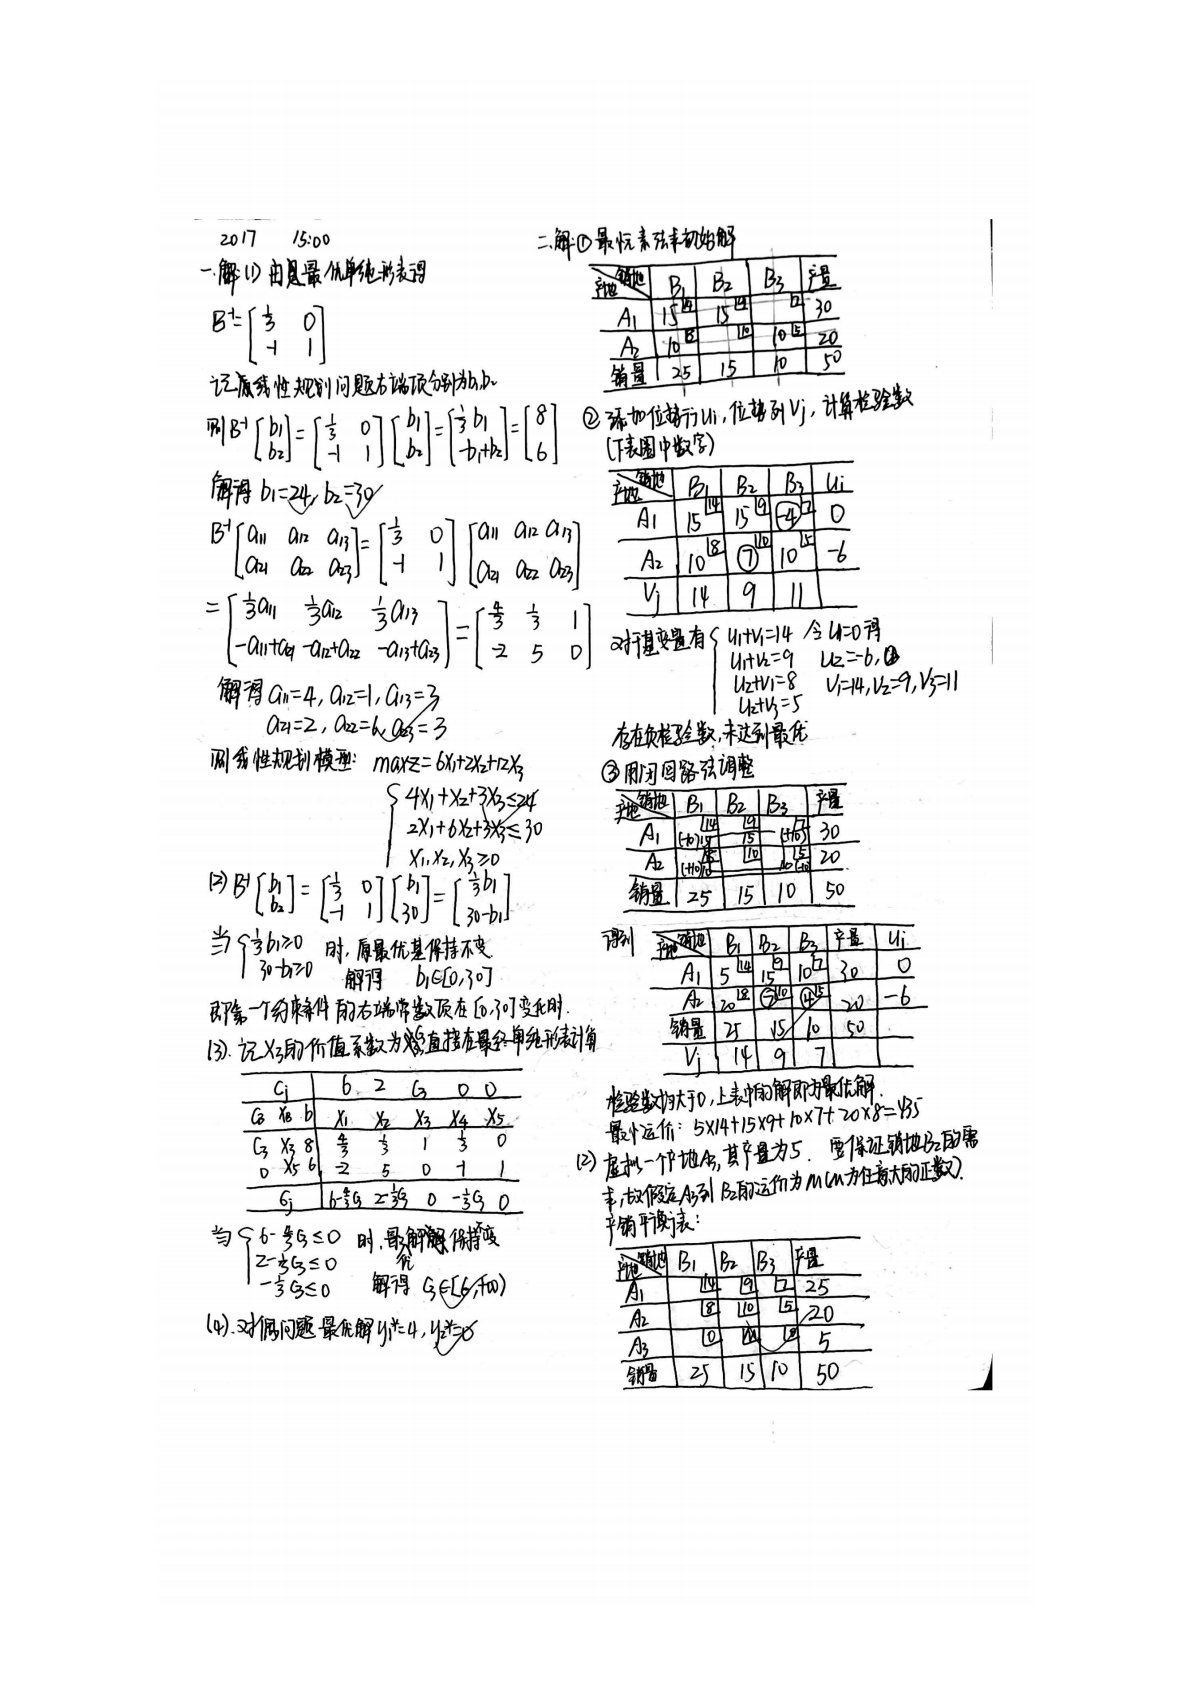 2017 15:00
一.解:(1) 由题最优单纯形表得
B⁻¹=[1/3 0
-1 1]
记原线性规划问题右端项分别为b₁,b₂
则B⁻¹[b₁ b₂]=[1/3 0 -1 1][b₁ b₂]=[1/3b₁ -b₁+b₂]=[8 6]
解得 b₁=24, b₂=30
B⁻¹[a₁₁ a₁₂ a₁₃ a₂₁ a₂₂ a₂₃]=[1/3 0 -1 1][a₁₁ a₁₂ a₁₃ a₂₁ a₂₂ a₂₃]
=[1/3a₁₁ 1/3a₁₂ 1/3a₁₃ -a₁₁+a₂₁ -a₁₂+a₂₂ -a₁₃+a₂₃]=[4/3 1/3 1 -2 5 0]
解得 a₁₁=4, a₁₂=1, a₁₃=3
a₂₁=2, a₂₂=6, a₂₃=3
则线性规划模型: maxz=6x₁+2x₂+12x₃
4x₁+x₂+3x₃≤24
2x₁+6x₂+3x₃≤30
x₁,x₂,x₃≥0
(2) B⁻¹[b₁ b₂]=[1/3 0 -1 1][b₁ 30]=[1/3b₁ 30-b₁]
当{1/3b₁≥0 时,原最优基保持不变
30-b₁≥0 解得 b₁∈[0,30]
即第一个约束条件的右端常数项在[0,30]变化时.
(3). 记x₃的价值系数为C₃,直接在最终单纯形表计算
Cj 6 2 C₃ 0 0
CB XB b x₁ x₂ x₃ x₄ x₅
C₃ x₃ 8 4/3 1/3 1 1/3 0
0 x₅ 6 -2 5 0 -1 1
σj 6-4/3C₃ 2-1/3C₃ 0 -1/3C₃ 0
当{6-4/3C₃≤0 时,最优解保持不变
2-1/3C₃≤0
-1/3C₃≤0 解得 C₃∈[6,+∞)
(4).对偶问题最优解y₁*=4, y₂*=0
二.解:①最小元素法求初始解
产地 销地 B₁ B₂ B₃ 产量
A₁ 15 14 15 9 7 30
A₂ 10 8 10 10 5 20
销量 25 15 10 50
②添加位势行ui,位势列vj,计算检验数
(下表圈中数字)
产地 销地 B₁ B₂ B₃ ui
A₁ 15 14 15 9 -4 7 0
A₂ 10 8 7 10 10 5 -6
Vj 14 9 11
对于基变量有{u₁+v₁=14 令u₁=0得
u₁+v₂=9 u₂=-6,
u₂+v₁=8 v₁=14,v₂=9,v₃=11
u₂+v₃=5
存在负检验数,未达到最优
③用闭回路法调整
产地 销地 B₁ B₂ B₃ 产量
A₁ (-10)15 14 15 9 (+10) 7 30
A₂ (+10)10 8 10 10(-10) 5 20
销量 25 15 10 50
得到 产地 销地 B₁ B₂ B₃ 产量 ui
A₁ 5 14 15 9 10 7 30 0
A₂ 20 8 7 10 4 5 20 -6
销量 25 15 10 50
Vj 14 9 7
检验数均大于0,上表中的解即为最优解.
最小运价: 5×14+15×9+10×7+20×8=435
(2) 虚拟一个产地A₃,其产量为5. 要保证销地B₂的需
求,故假定A₃到B₂的运价为M(M为任意大的正数).
产销平衡表:
产地 销地 B₁ B₂ B₃ 产量
A₁ 14 9 7 25
A₂ 8 10 5 20
A₃ 0 M 0 5
销量 25 15 10 50